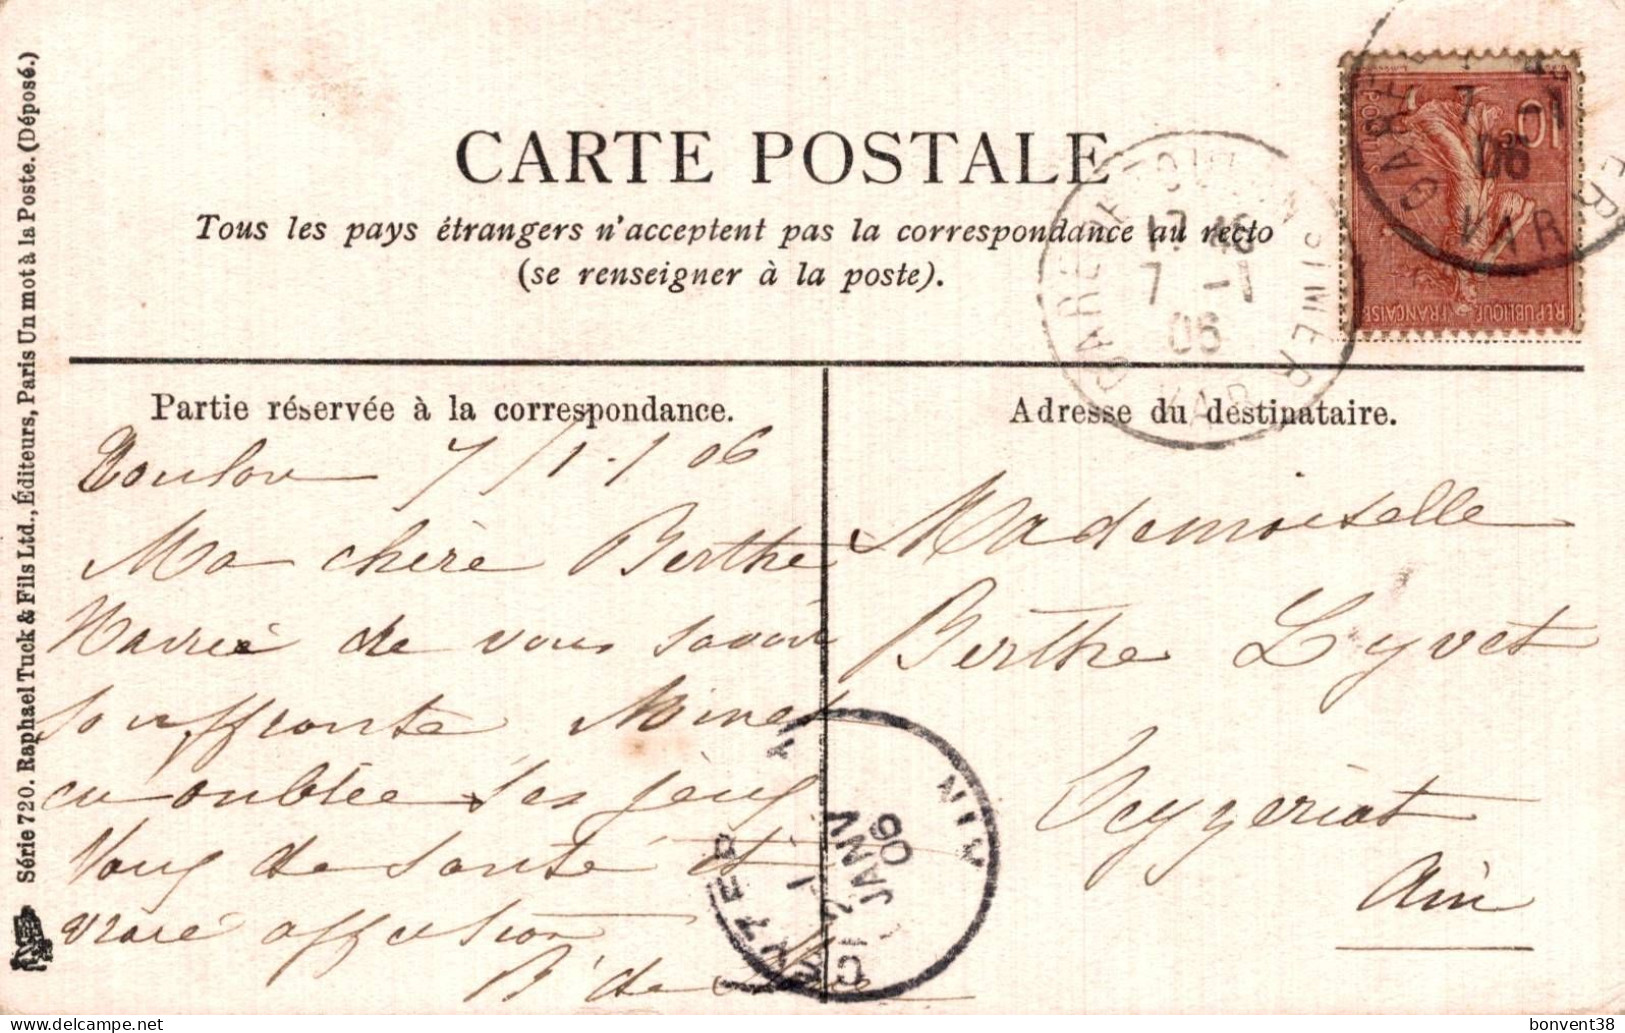 CARTE POSTALE
Tous les pays étrangers n'acceptent pas la correspondance au recto
(se renseigner à la poste).
Série 720. Raphael Tuck & Fils Ltd., Éditeurs, Paris Un mot à la Poste. (Déposé.)
Partie réservée à la correspondance.
Toulon 7/1/06
Ma chère Berthe
Navrée de vous savoir
souffrante
oublée
de santé et
vraie affection
B de
Adresse du destinataire.
Mademoiselle
Berthe Lyvet
Ceyzeriat
Ain
GARE DE
17 45
7 -1
06
VAR
GARE
7 -1
06
VAR
10
POSTES
REPUBLIQUE FRANÇAISE
AIN
JANV
06
bonvent38